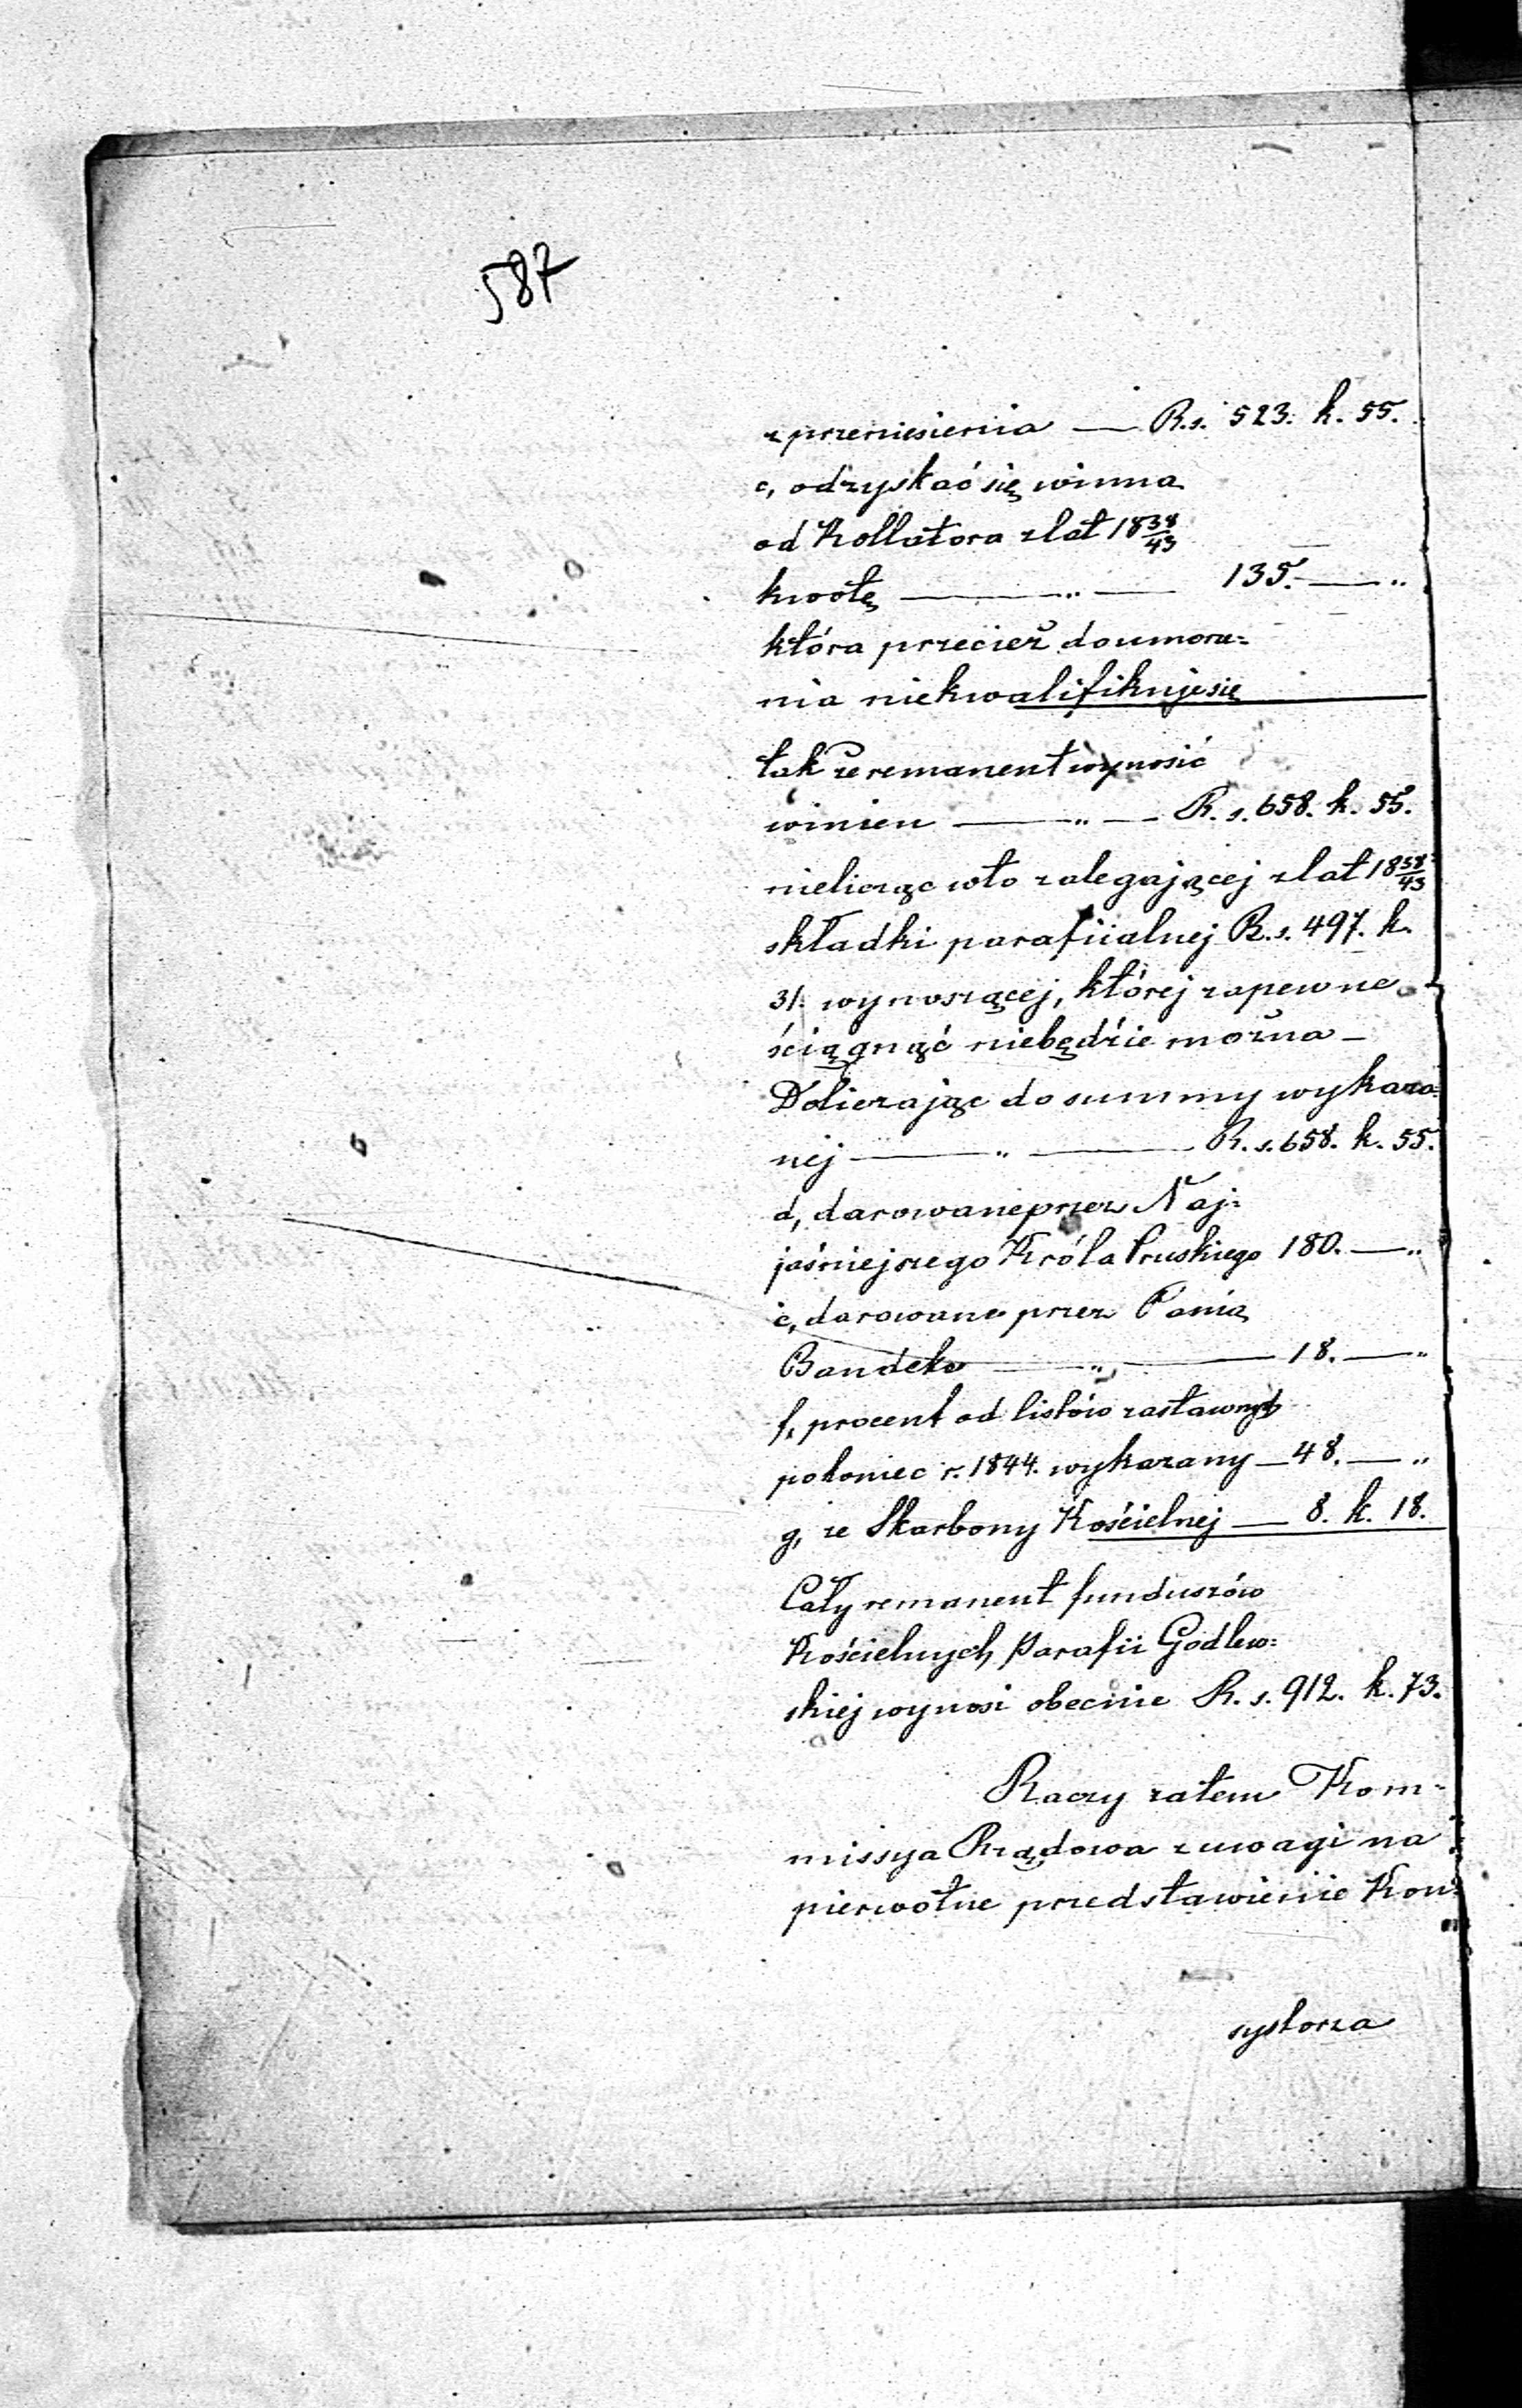 587
z przeniesienia — R.s. 523. k. 55.
c, odzyskać się winna
od Kollatora z lat 18 38/43
kwotę — „ — 135. — „
która przecież do umorze=
nia niekwalifikuje się
tak że remanent wynosić
winien — „ — R.s. 658. k. 55.
nielicząc w to zalegającej z lat 18 38/43
składki parafiialnej R.s. 497. k.
31. wynoszącej, której zapewne
ściągnąć niebędzie można —
Doliczając do summy wykaza=
nej — „ — R.s. 658. k. 55.
d, darowane przez Naj=
jaśniejszego Króla Pruskiego 180. — „
e, darowane przez Panią
Bandtke — „ — 18. — „
f, procent od listów zastawnych
pokoniec r. 1844. wykazany — 48. — „
g, ze Skarbony Kościelnej — 8. k. 18.
Cały remanent funduszów
Kościelnych Parafii Godlew=
skiej wynosi obecnie R.s. 912. k. 73.
Raczy zatem Kom=
missya Rządowa z uwagi na
pierwotne przedstawienie Kon=
systorza